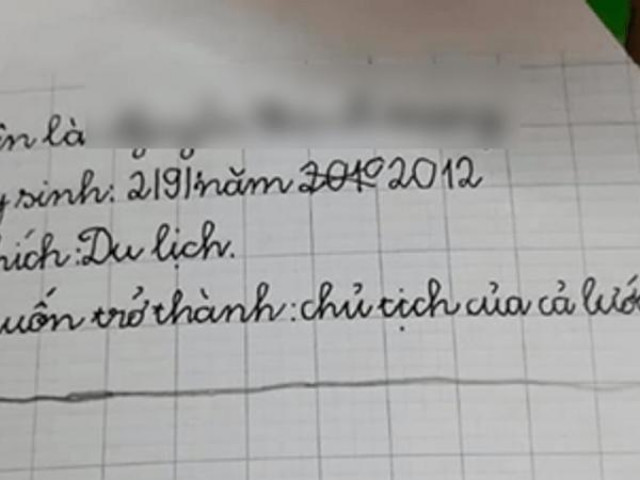 ên là
y sinh: 2/9/năm 2019 2012
hích: Du lịch.
uốn trở thành: chủ tịch của cả lướ